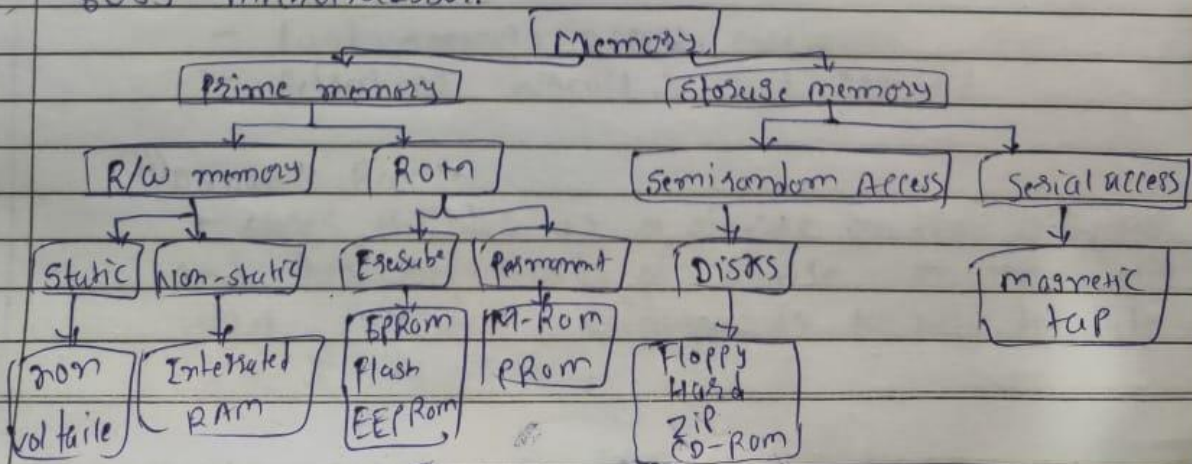 Memory
Prime memory
Storage memory
R/W memory
ROM
Semirandom Access
Serial access
Static
Non-static
Erasabe
Permanent
Disks
magnetic
tap
non
voltaile
Integrated
RAM
EPROM
Flash
EEPROM
M-ROM
PROM
Floppy
Hard
Zip
CD-ROM